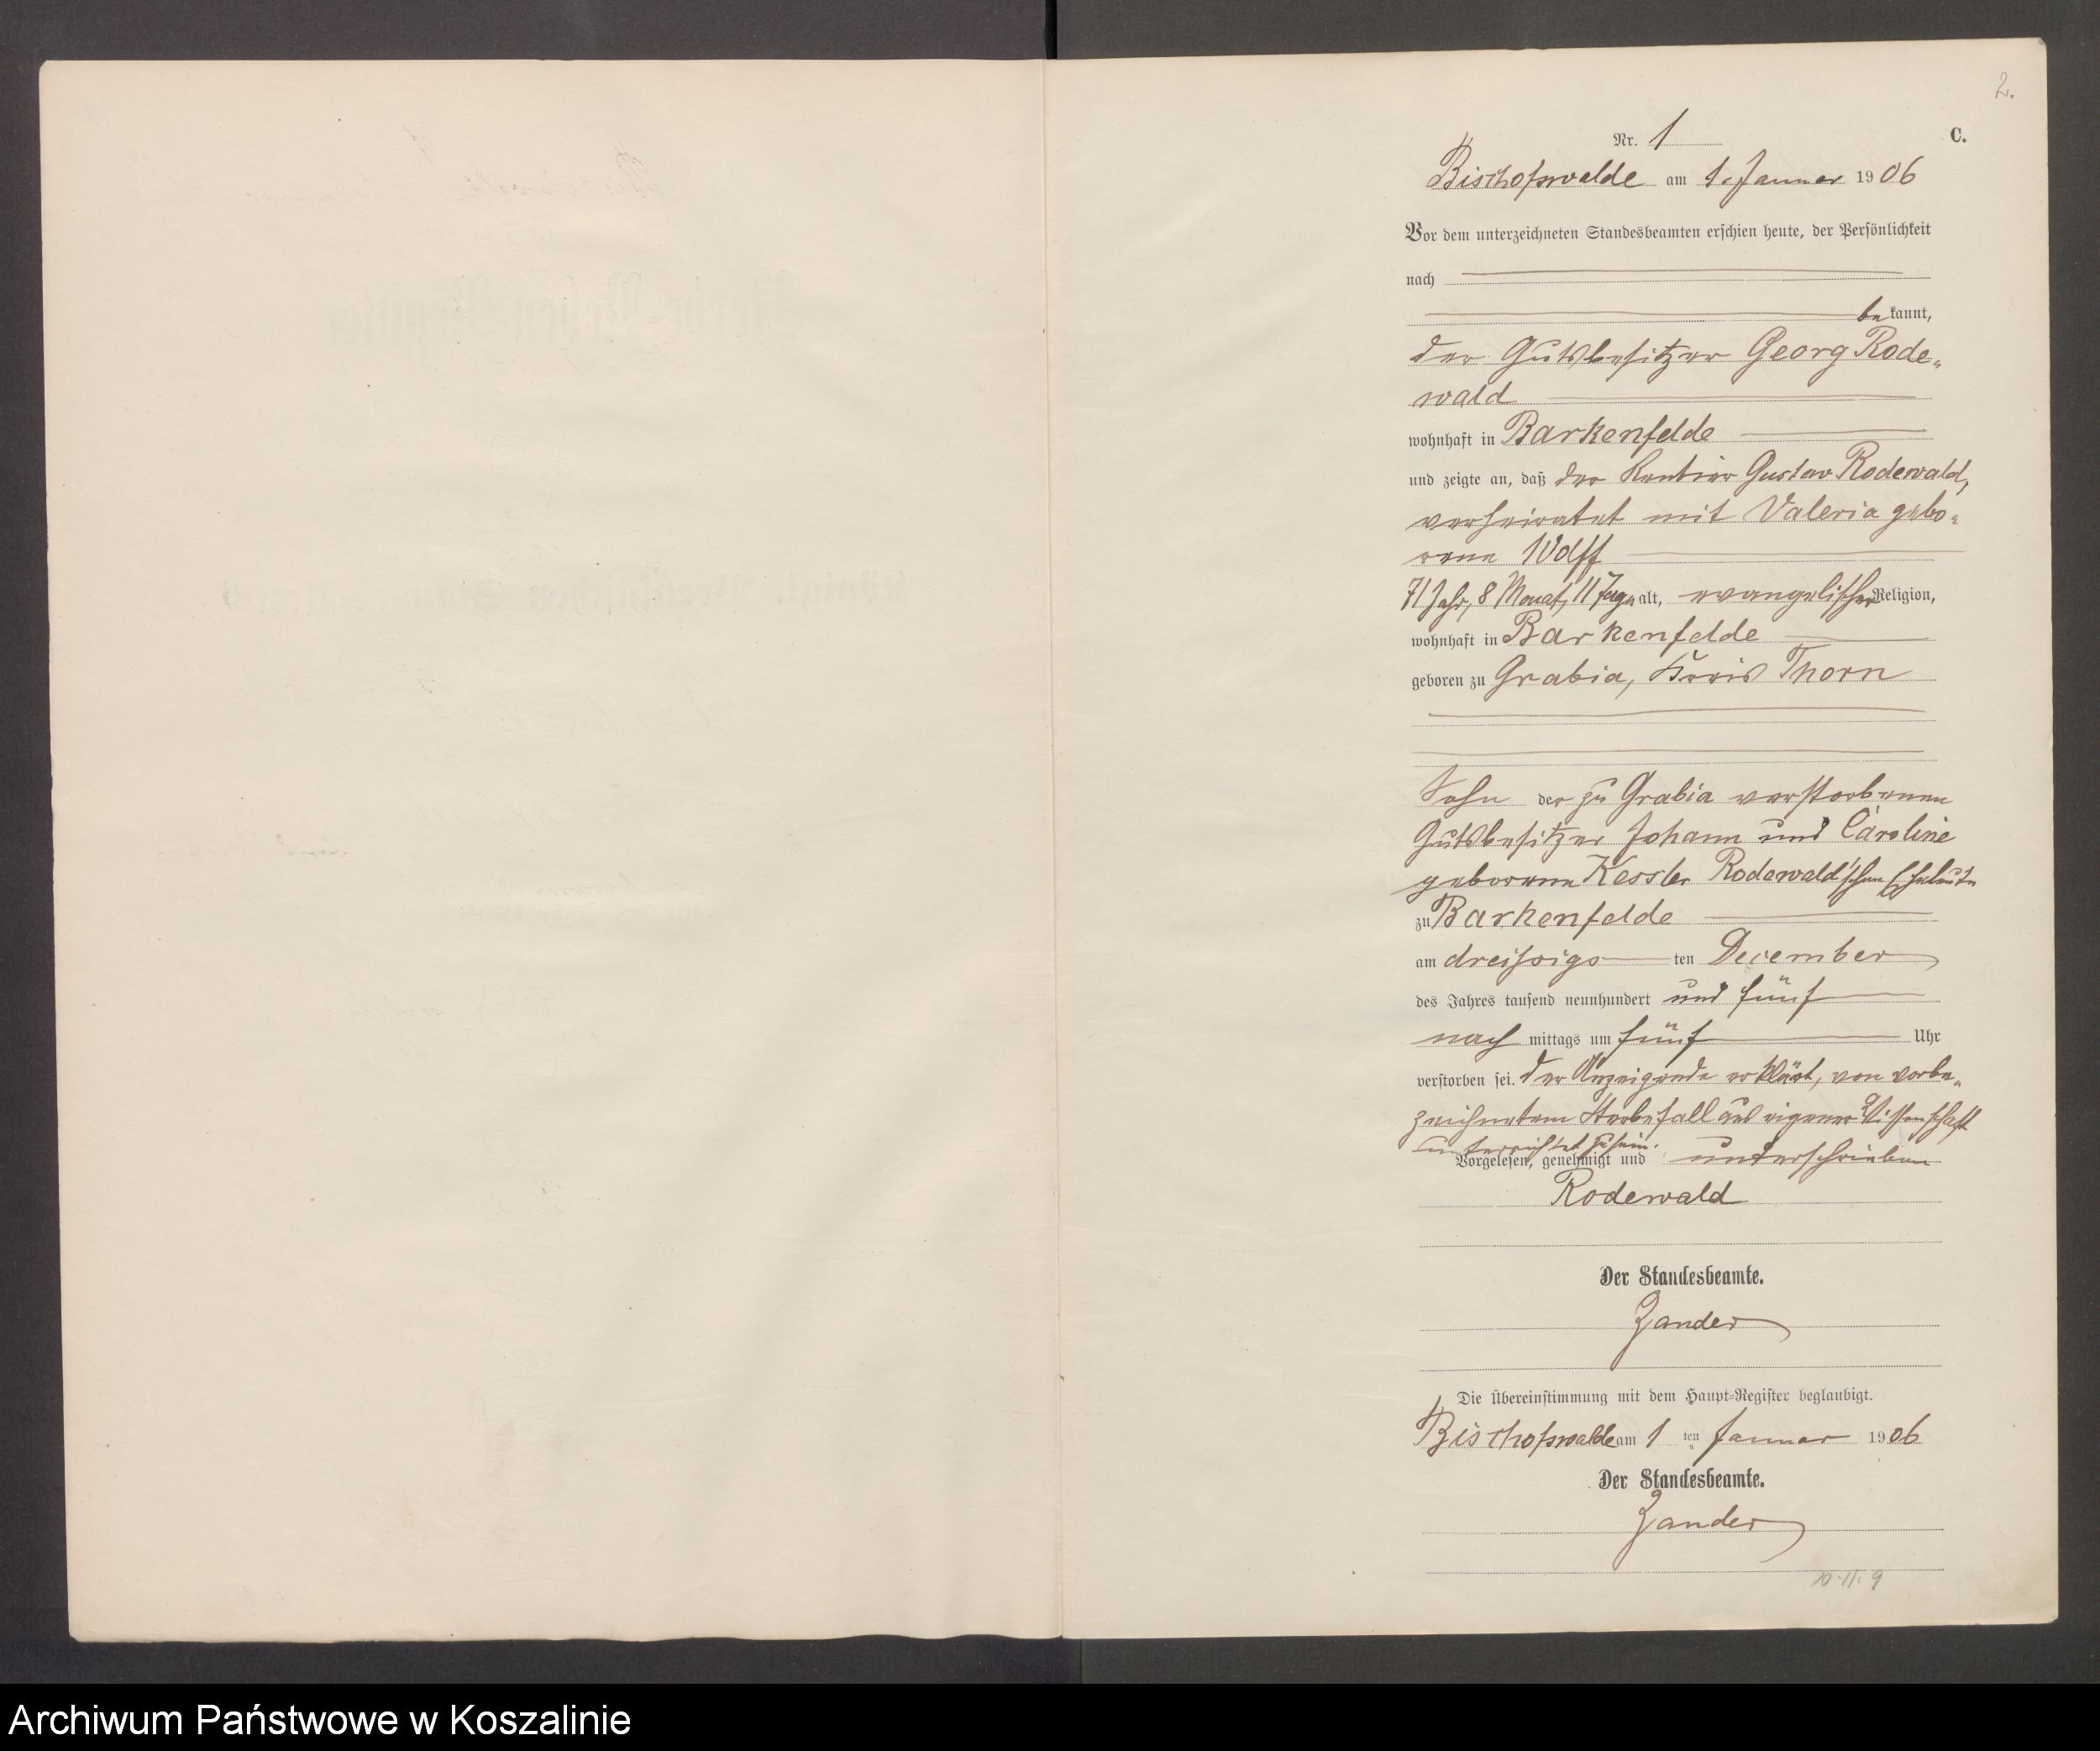 2.
C.
Nr. 1
Bischofswalde am 1. Januar 1906
Vor dem unterzeichneten Standesbeamten erschien heute, der Persönlichkeit
nach
bekannt,
der Gutsbesitzer Georg Rode-
wald
wohnhaft in Barkenfelde
und zeigte an, daß der Rentier Gustav Rodewald,
verheiratet mit Valeria gebo-
rene Wolff
71 Jahr, 8 Monat, 11 Tage alt, evangelischer Religion,
wohnhaft in Barkenfelde
geboren zu Grabia, Kreis Thorn
Sohn der zu Grabia verstorbenen
Gutsbesitzer Johann und Caroline
geborene Kessler Rodewald'schen Eheleute
zu Barkenfelde
am dreissigsten December
des Jahres tausend neunhundert und fünf
nachmittags um fünf Uhr
verstorben sei. Der Anzeigende erklärt, von vorbe-
zeichnetem Sterbefall aus eigener Wissenschaft
unterrichtet zu sein.
Vorgelesen, genehmigt und unterschrieben
Rodewald
Der Standesbeamte.
Zander
Die Übereinstimmung mit dem Haupt-Register beglaubigt.
Bischofswalde am 1ten Januar 1906
Der Standesbeamte.
Zander
10·II·9
Archiwum Państwowe w Koszalinie